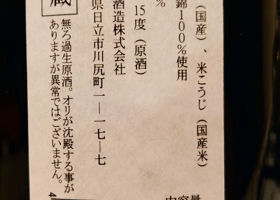 （国産）、米こうじ（国産米）
錦100％使用
15度（原酒）
酒造株式会社
県日立市川尻町一ー一七ー七
蔵
無ろ過生原酒。オリが沈殿する事が
ありますが異常ではございません。
内容量